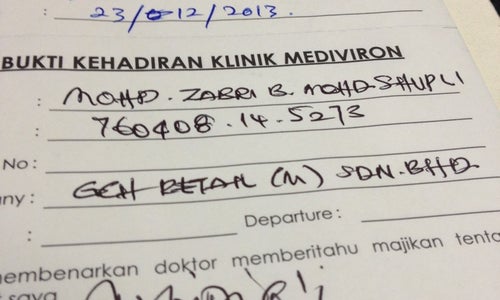 : 23/12/2013.
BUKTI KEHADIRAN KLINIK MEDIVIRON
: MOHD. ZABRI B. MOHD SHUPLI
: 760408.14.5273
No :
any : GCH RETAIL (M) SDN. BHD
: Departure :
embenarkan doktor memberitahu majikan tenta
saya